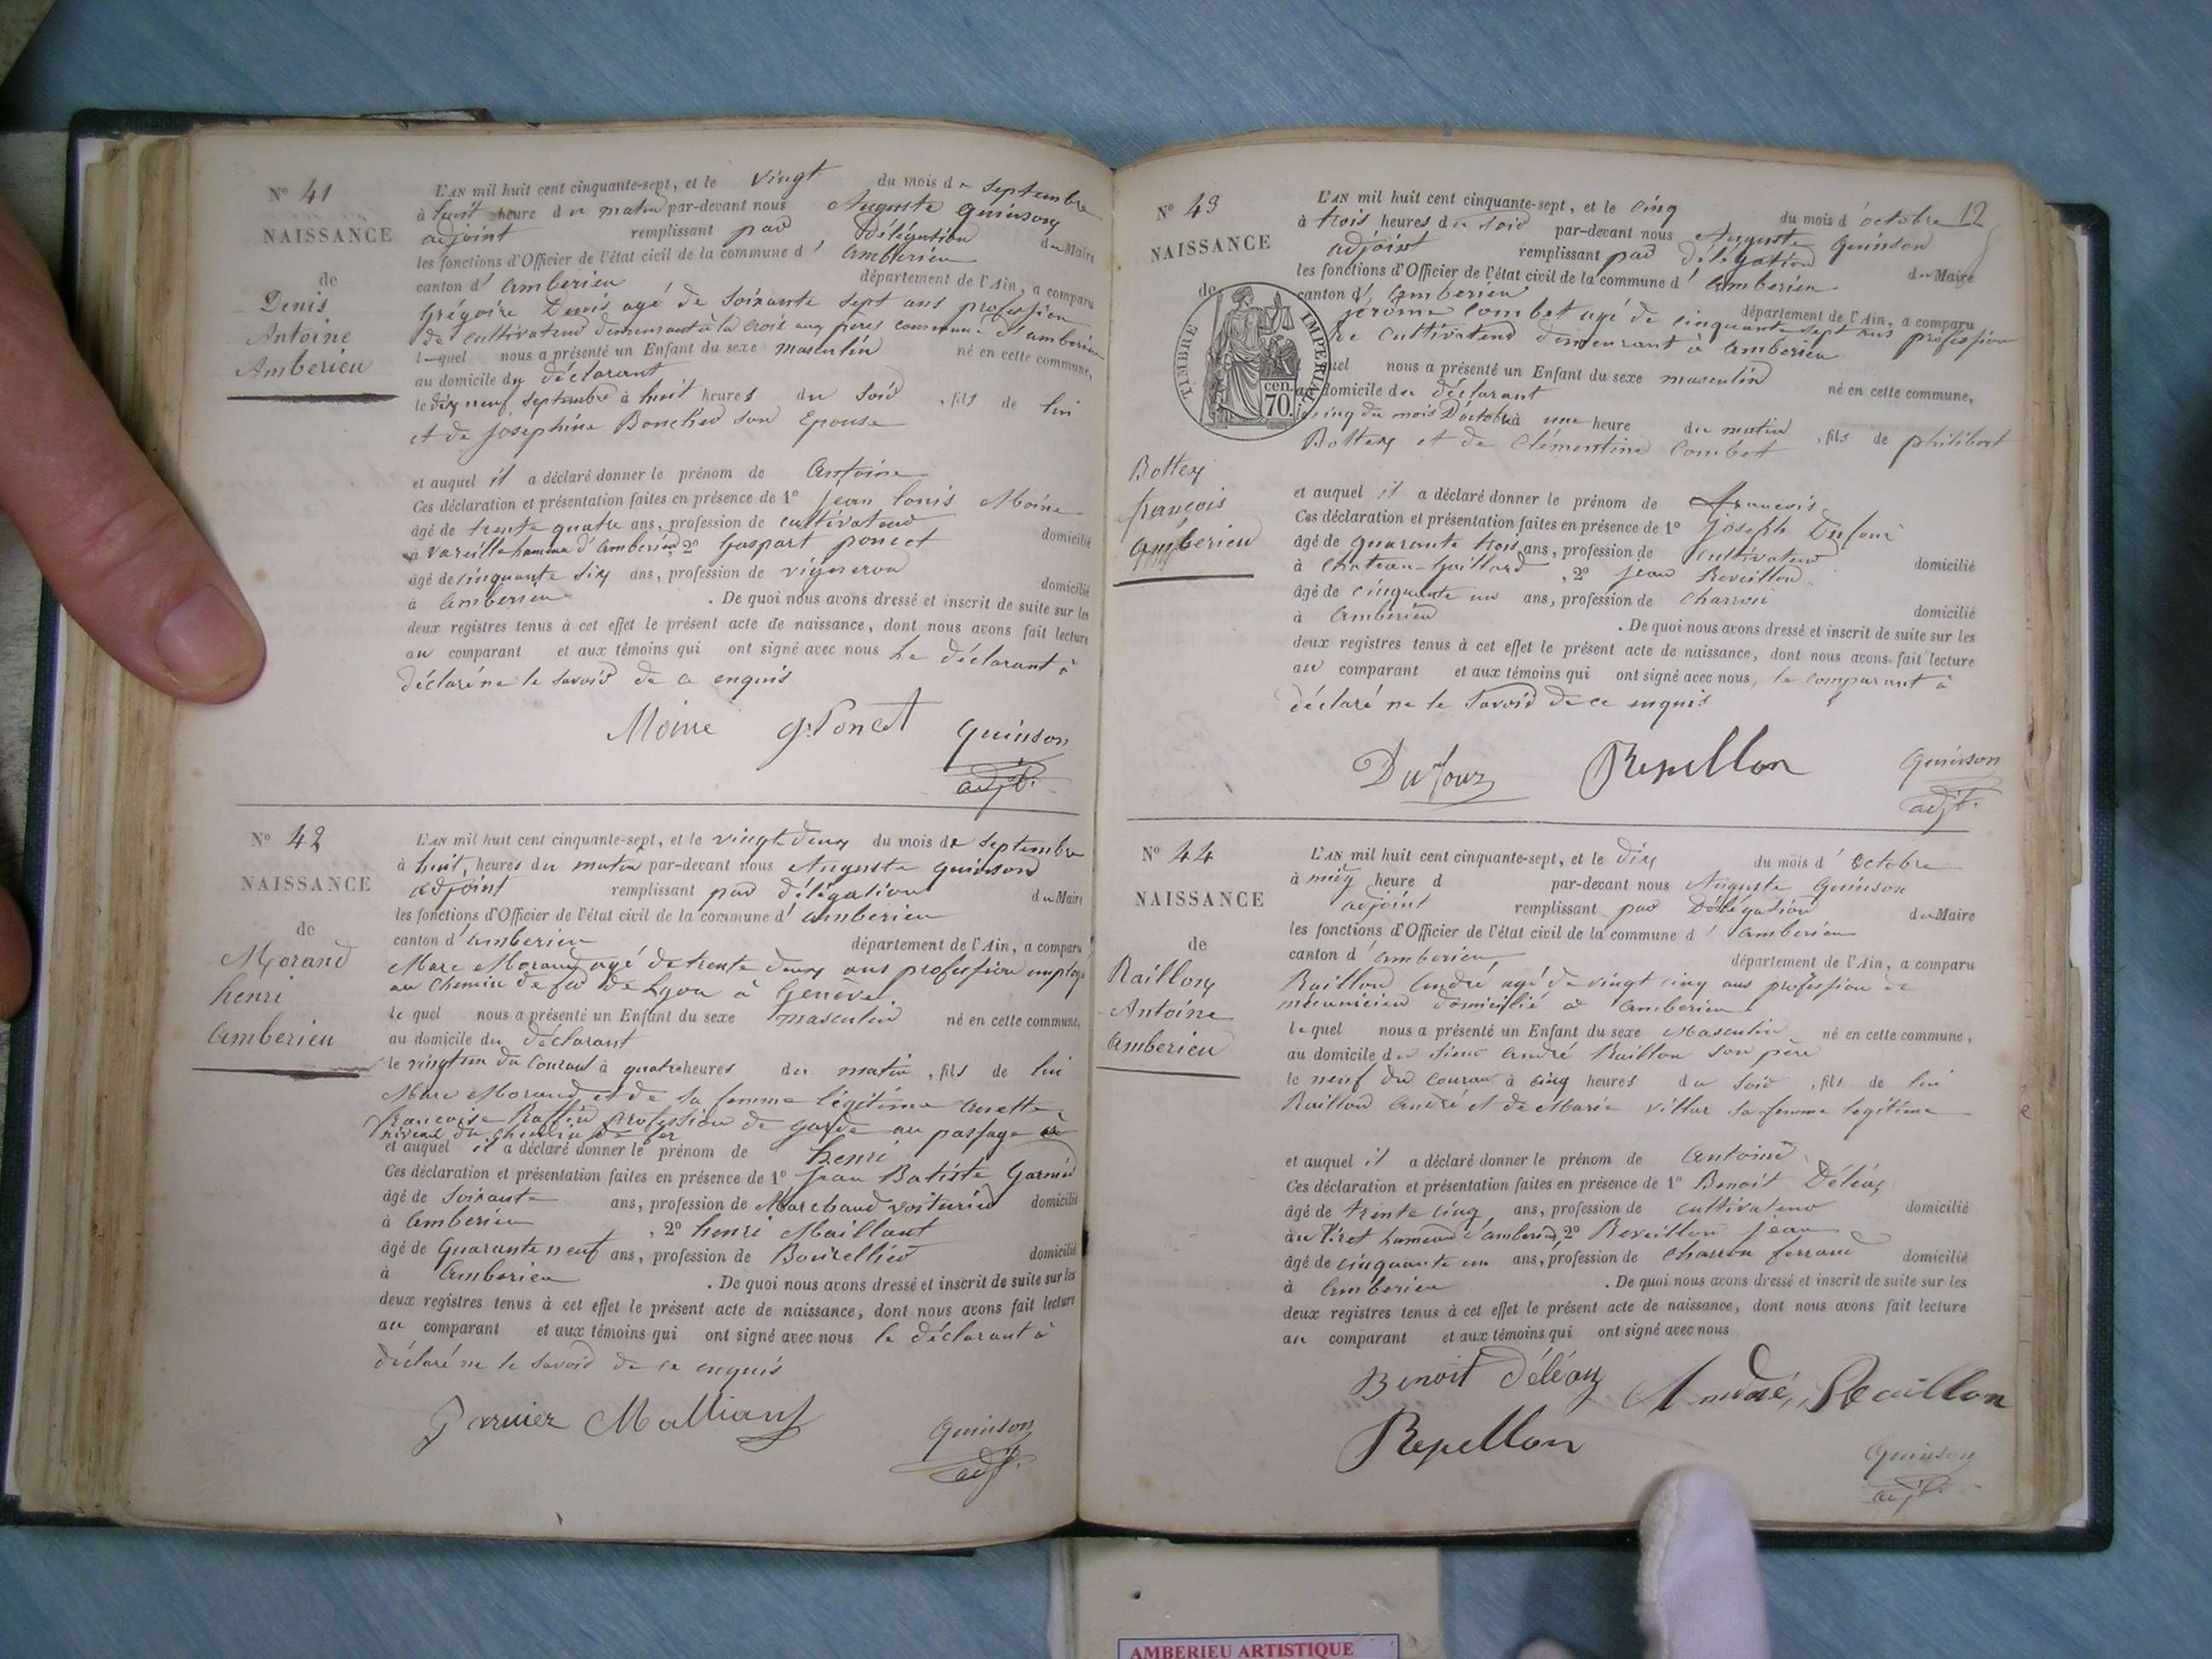 N° 41
NAISSANCE
de
Denis
Antoine
Amberieu
L'AN mil huit cent cinquante-sept, et le vingt du mois de septembre
à huit heure du matin par-devant nous Auguste quinson
adjoint remplissant par délégation du Maire
les fonctions d'Officier de l'état civil de la commune d' amberieu
canton d' amberieu département de l'Ain, a comparu
Grégoire Denis agé de soixante sept ans profession
de cultivateur demeurant à la croix aux frères commune d'amberieu
lequel nous a présenté un Enfant du sexe masculin né en cette commune,
au domicile du déclarant
le dix neuf septembre à huit heures du soir, fils de lui
et de josephine Boucher son Epouse
et auquel il a déclaré donner le prénom de Antoine
Ces déclaration et présentation faites en présence de 1° jean louis Moine
âgé de trente quatre ans, profession de cultivateur domicilié
à vareille hameau d'amberieu 2° Gaspart poncet
âgé de cinquante six ans, profession de vigneron domicilié
à amberieu. De quoi nous avons dressé et inscrit de suite sur les
deux registres tenus à cet effet le présent acte de naissance, dont nous avons fait lecture
au comparant et aux témoins qui ont signé avec nous Le déclarant à
déclaré ne le savoir de ce enquis
Moine G. Poncet quinson
adjt.
N° 42
NAISSANCE
de
Morand
henri
amberieu
L'AN mil huit cent cinquante-sept, et le vingt deux du mois de septembre
à huit, heures du matin par-devant nous Auguste quinson
adjoint remplissant par délégation du Maire
les fonctions d'Officier de l'état civil de la commune d' amberieu
canton d' amberieu département de l'Ain, a comparu
Marc Morand agé de trente deux ans profession employé
au chemin de fer de Lyon à Genève
lequel nous a présenté un Enfant du sexe masculin né en cette commune,
au domicile du déclarant
le vingt un du courant à quatre heures du matin, fils de lui
Marc Morand et de sa femme légitime anette
françoise Raffin profession de garde au passage
niveau du chemin de fer
et auquel il a déclaré donner le prénom de henri
Ces déclaration et présentation faites en présence de 1° jean Batiste Garnier
âgé de soixante ans, profession de Marchand voiturier domicilié
à amberieu, 2° henri Maillant
âgé de quarante neuf ans, profession de Bourellier domicilié
à amberieu. De quoi nous avons dressé et inscrit de suite sur les
deux registres tenus à cet effet le présent acte de naissance, dont nous avons fait lecture
au comparant et aux témoins qui ont signé avec nous le déclarant à
déclaré ne le savoir de ce enquis
garnier quinson
adjt.
N° 43
NAISSANCE
de
TIMBRE IMPERIAL
70. cen.
Bottex
françois
amberieu
12
L'AN mil huit cent cinquante-sept, et le cinq du mois d'octobre
à trois heures du soir par-devant nous Auguste quinson
adjoint remplissant par délégation du Maire
les fonctions d'Officier de l'état civil de la commune d' amberieu
canton d' amberieu département de l'Ain, a comparu
jérôme Combet agé de cinquante sept ans profession
de cultivateur demeurant à amberieu
quel nous a présenté un Enfant du sexe masculin né en cette commune,
au domicile du déclarant
le cinq du mois d'octobre à une heure du matin, fils de philibert
Bottex et de Clémentine Combet
et auquel il a déclaré donner le prénom de francois
Ces déclaration et présentation faites en présence de 1° joseph Dufour
âgé de quarante trois ans, profession de cultivateur domicilié
à Chateau-Gaillard, 2° jean
âgé de cinquante un ans, profession de charron domicilié
à amberieu. De quoi nous avons dressé et inscrit de suite sur les
deux registres tenus à cet effet le présent acte de naissance, dont nous avons fait lecture
au comparant et aux témoins qui ont signé avec nous, le comparant à
déclaré ne le savoir de ce enquis
Dufour Repellon quinson
adjt.
N° 44
NAISSANCE
de
Raillon
Antoine
amberieu
L'AN mil huit cent cinquante-sept, et le dix du mois d' octobre
à midy heure d par-devant nous Auguste quinson
adjoint remplissant par délégation du Maire
les fonctions d'Officier de l'état civil de la commune d' amberieu
canton d' amberieu département de l'Ain, a comparu
Raillon André agé de vingt cinq ans profession de
mécanicien domicilié à amberieu
lequel nous a présenté un Enfant du sexe Masculin né en cette commune,
au domicile du sieur andré Raillon son père
le neuf du courant à cinq heures du soir, fils de lui
Raillon andré et de Marie villar sa femme legitime
et auquel il a déclaré donner le prénom de antoine
Ces déclaration et présentation faites en présence de 1° Benoit Déléaz
âgé de trente cinq ans, profession de cultivateur domicilié
au Tiret hameau d'amberieu, 2° jean
âgé de cinquante un ans, profession de charron domicilié
à amberieu. De quoi nous avons dressé et inscrit de suite sur les
deux registres tenus à cet effet le présent acte de naissance, dont nous avons fait lecture
au comparant et aux témoins qui ont signé avec nous
Benoit Déléaz André Raillon
Repellon quinson
adjt.
AMBERIEU ARTISTIQUE